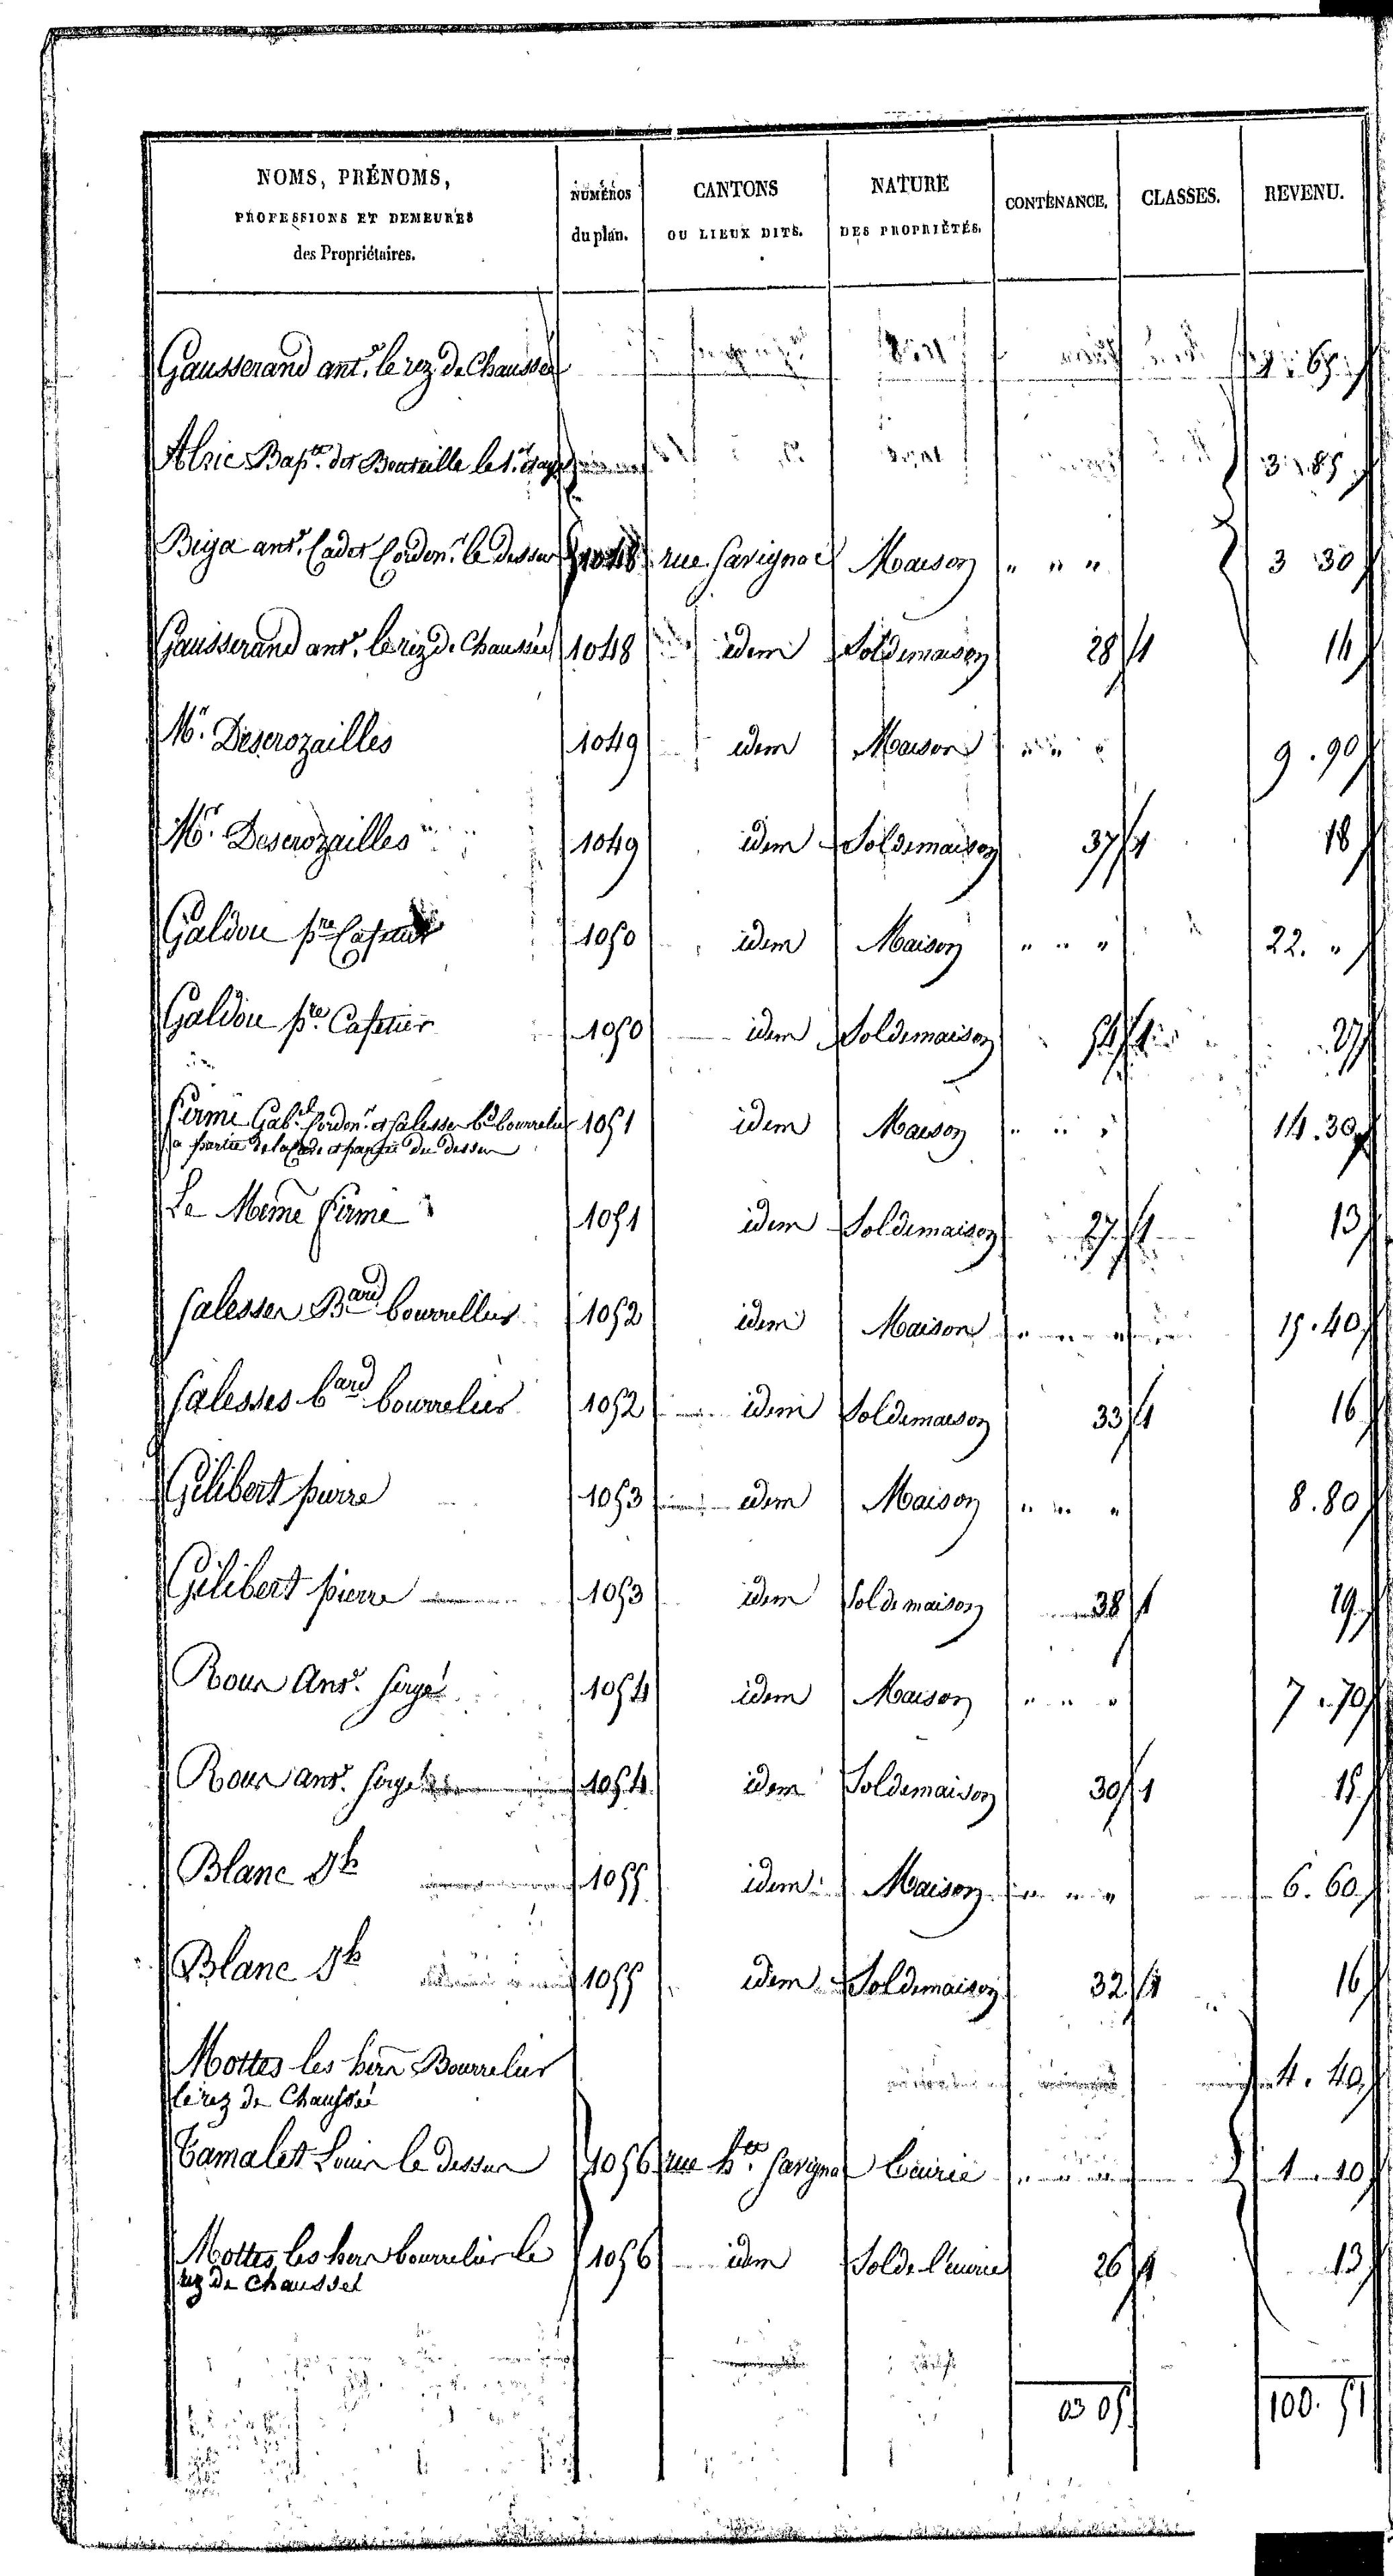 NOMS, PRÉNOMS, PROFESSIONS ET DEMEURES des Propriétaires. NUMÉROS du plan. CANTONS OU LIEUX DITS. NATURE DES PROPRIÉTÉS. CONTENANCE. CLASSES. REVENU.
Gausserand ant. le rez de Chaussée
Alric Bapte. dit le 1er étage 3 . 85
Biga ant. Cadet Cordon. le dessus 1048 rue Savignac Maison " " " 3 30
Gausserand ant. le rez de Chaussée 1048 idem Sol de maison 28 1 14
Mr. Descrozailles 1049 idem Maison " " " 9 . 90
Mr. Descrozailles 1049 idem Sol de maison 37 1 18
Galdou pre Cafetier 1050 idem Maison " " " 22 . "
Galdou pre. Cafetier 1050 idem Sol de maison 54 1 27
Firmi Gabel Cordon. et Salesses bd bourrelier 1051 idem Maison " " " 14 . 30
a partie de la et partie du dessus
Le Meme firmi 1051 idem Sol de maison 27 1 13
Salesses Bard bourrellier 1052 idem Maison " " " 15 . 40
Salesses bard bourrelier 1052 idem Sol de maison 33 1 16
Gilibert pierre 1053 idem Maison " " " 8 . 80
Gilibert pierre 1053 idem Sol de maison 38 1 19
Roux Ant. 1054 idem Maison " " " 7 . 70
Roux ant. 1054 idem Sol de maison 30 1 15
Blanc Jh 1055 idem Maison " " " 6 . 60
Blanc Jh 1055 idem Sol de maison 32 1 16
Mottes les hers Bourrelier 4 . 40
le rez de Chaussée
Tamalet Louis le dessus 1056 rue bse Savignac Ecurie " " " 1 10
Mottes les hers bourrelier le 1056 idem Sol de l'ecurie 26 1 13
rez de chaussée
03 05 100 . 51